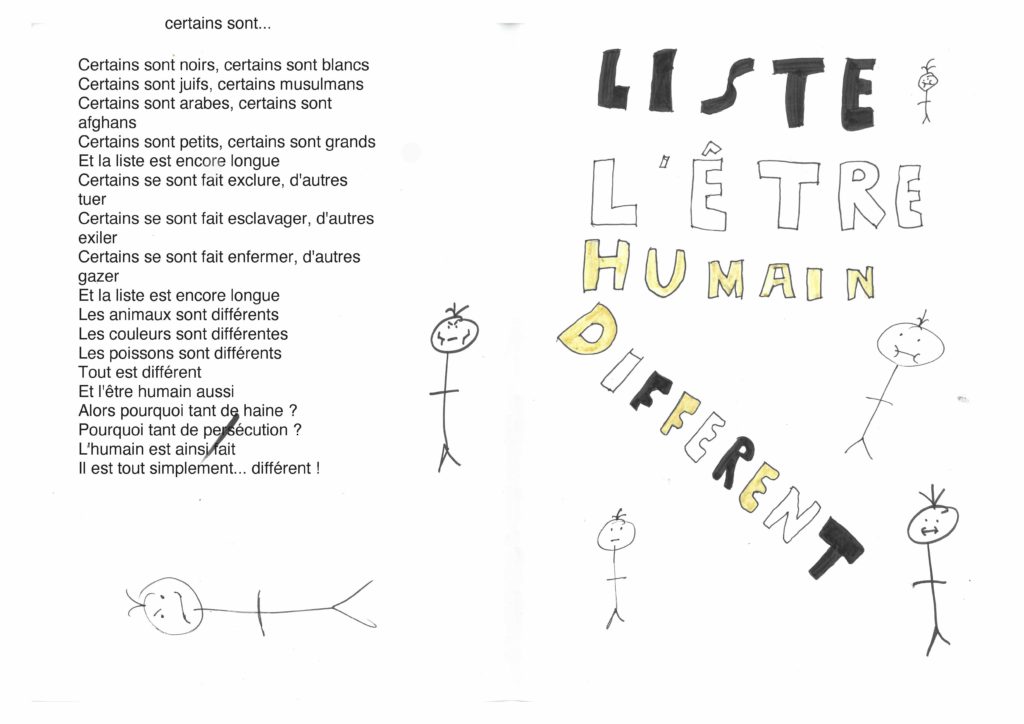 certains sont...
Certains sont noirs, certains sont blancs
Certains sont juifs, certains musulmans
Certains sont arabes, certains sont
afghans
Certains sont petits, certains sont grands
Et la liste est encore longue
Certains se sont fait exclure, d'autres
tuer
Certains se sont fait esclavager, d'autres
exiler
Certains se sont fait enfermer, d'autres
gazer
Et la liste est encore longue
Les animaux sont différents
Les couleurs sont différentes
Les poissons sont différents
Tout est différent
Et l'être humain aussi
Alors pourquoi tant de haine ?
Pourquoi tant de persécution ?
L'humain est ainsi fait
Il est tout simplement... différent !
LISTE
L'ÊTRE
HUMAIN
DIFFERENT